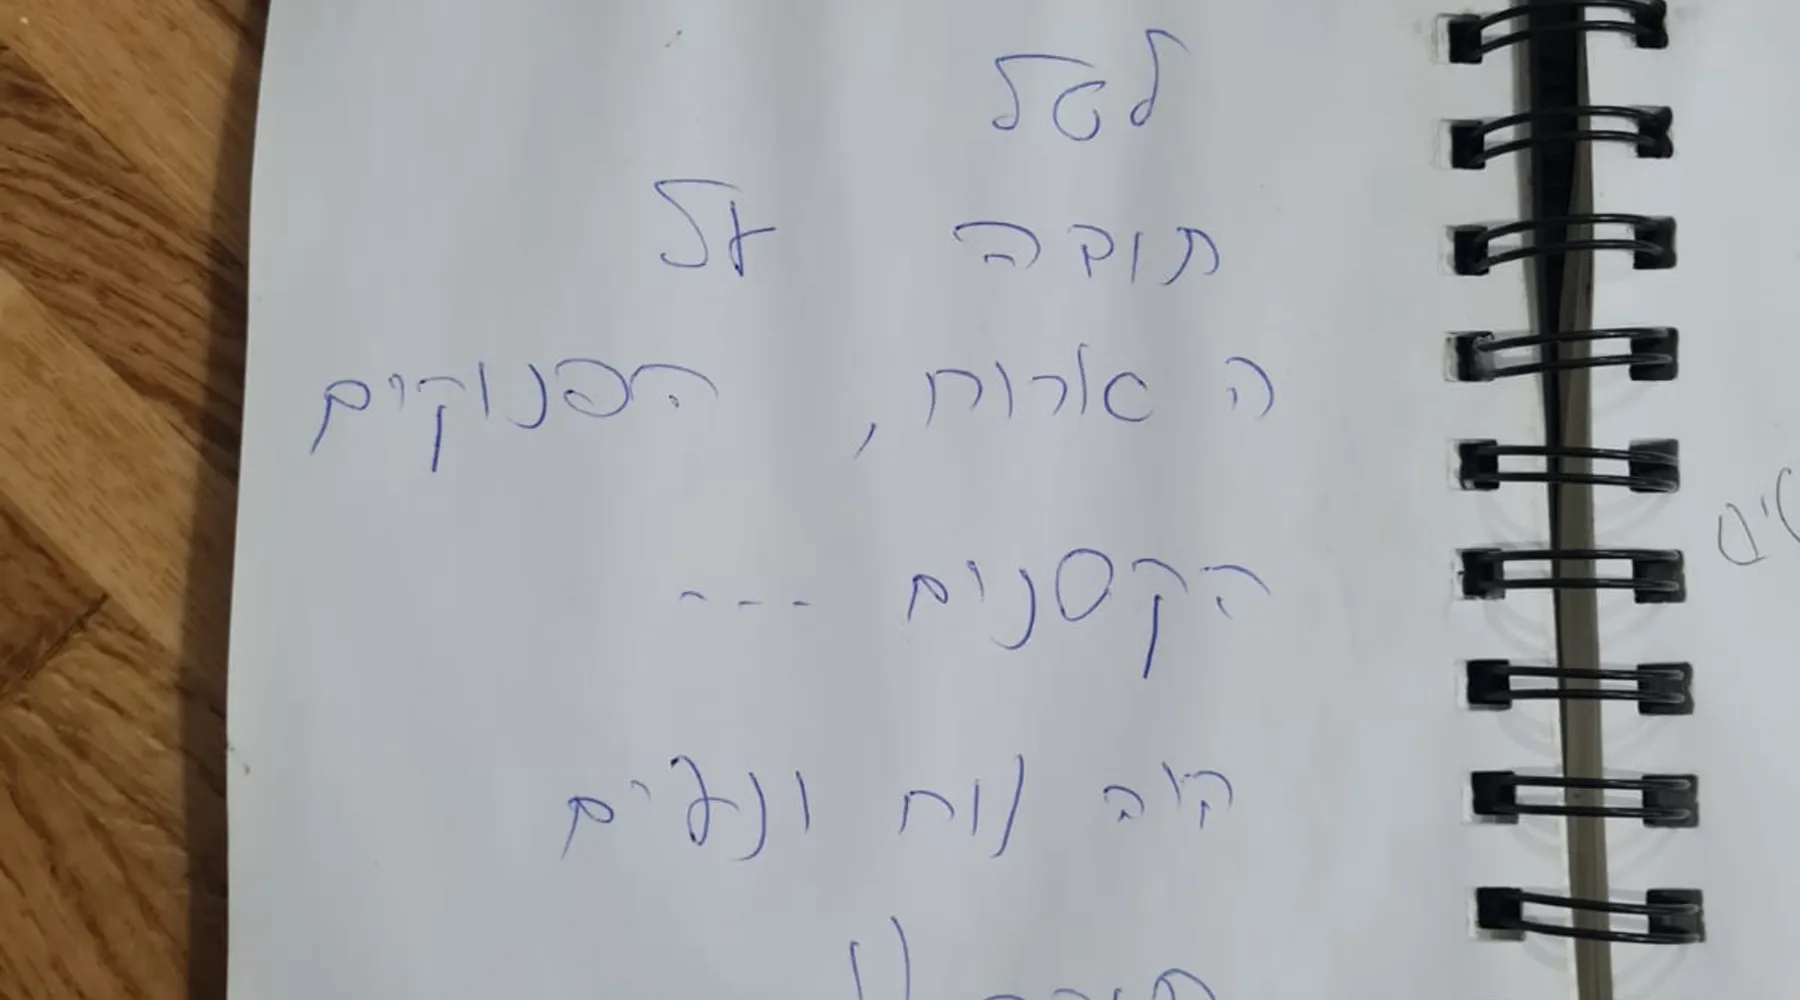 לטל
תובה על
האירוח, הפנוקים
הקטנים ---
היה נוח ונעים